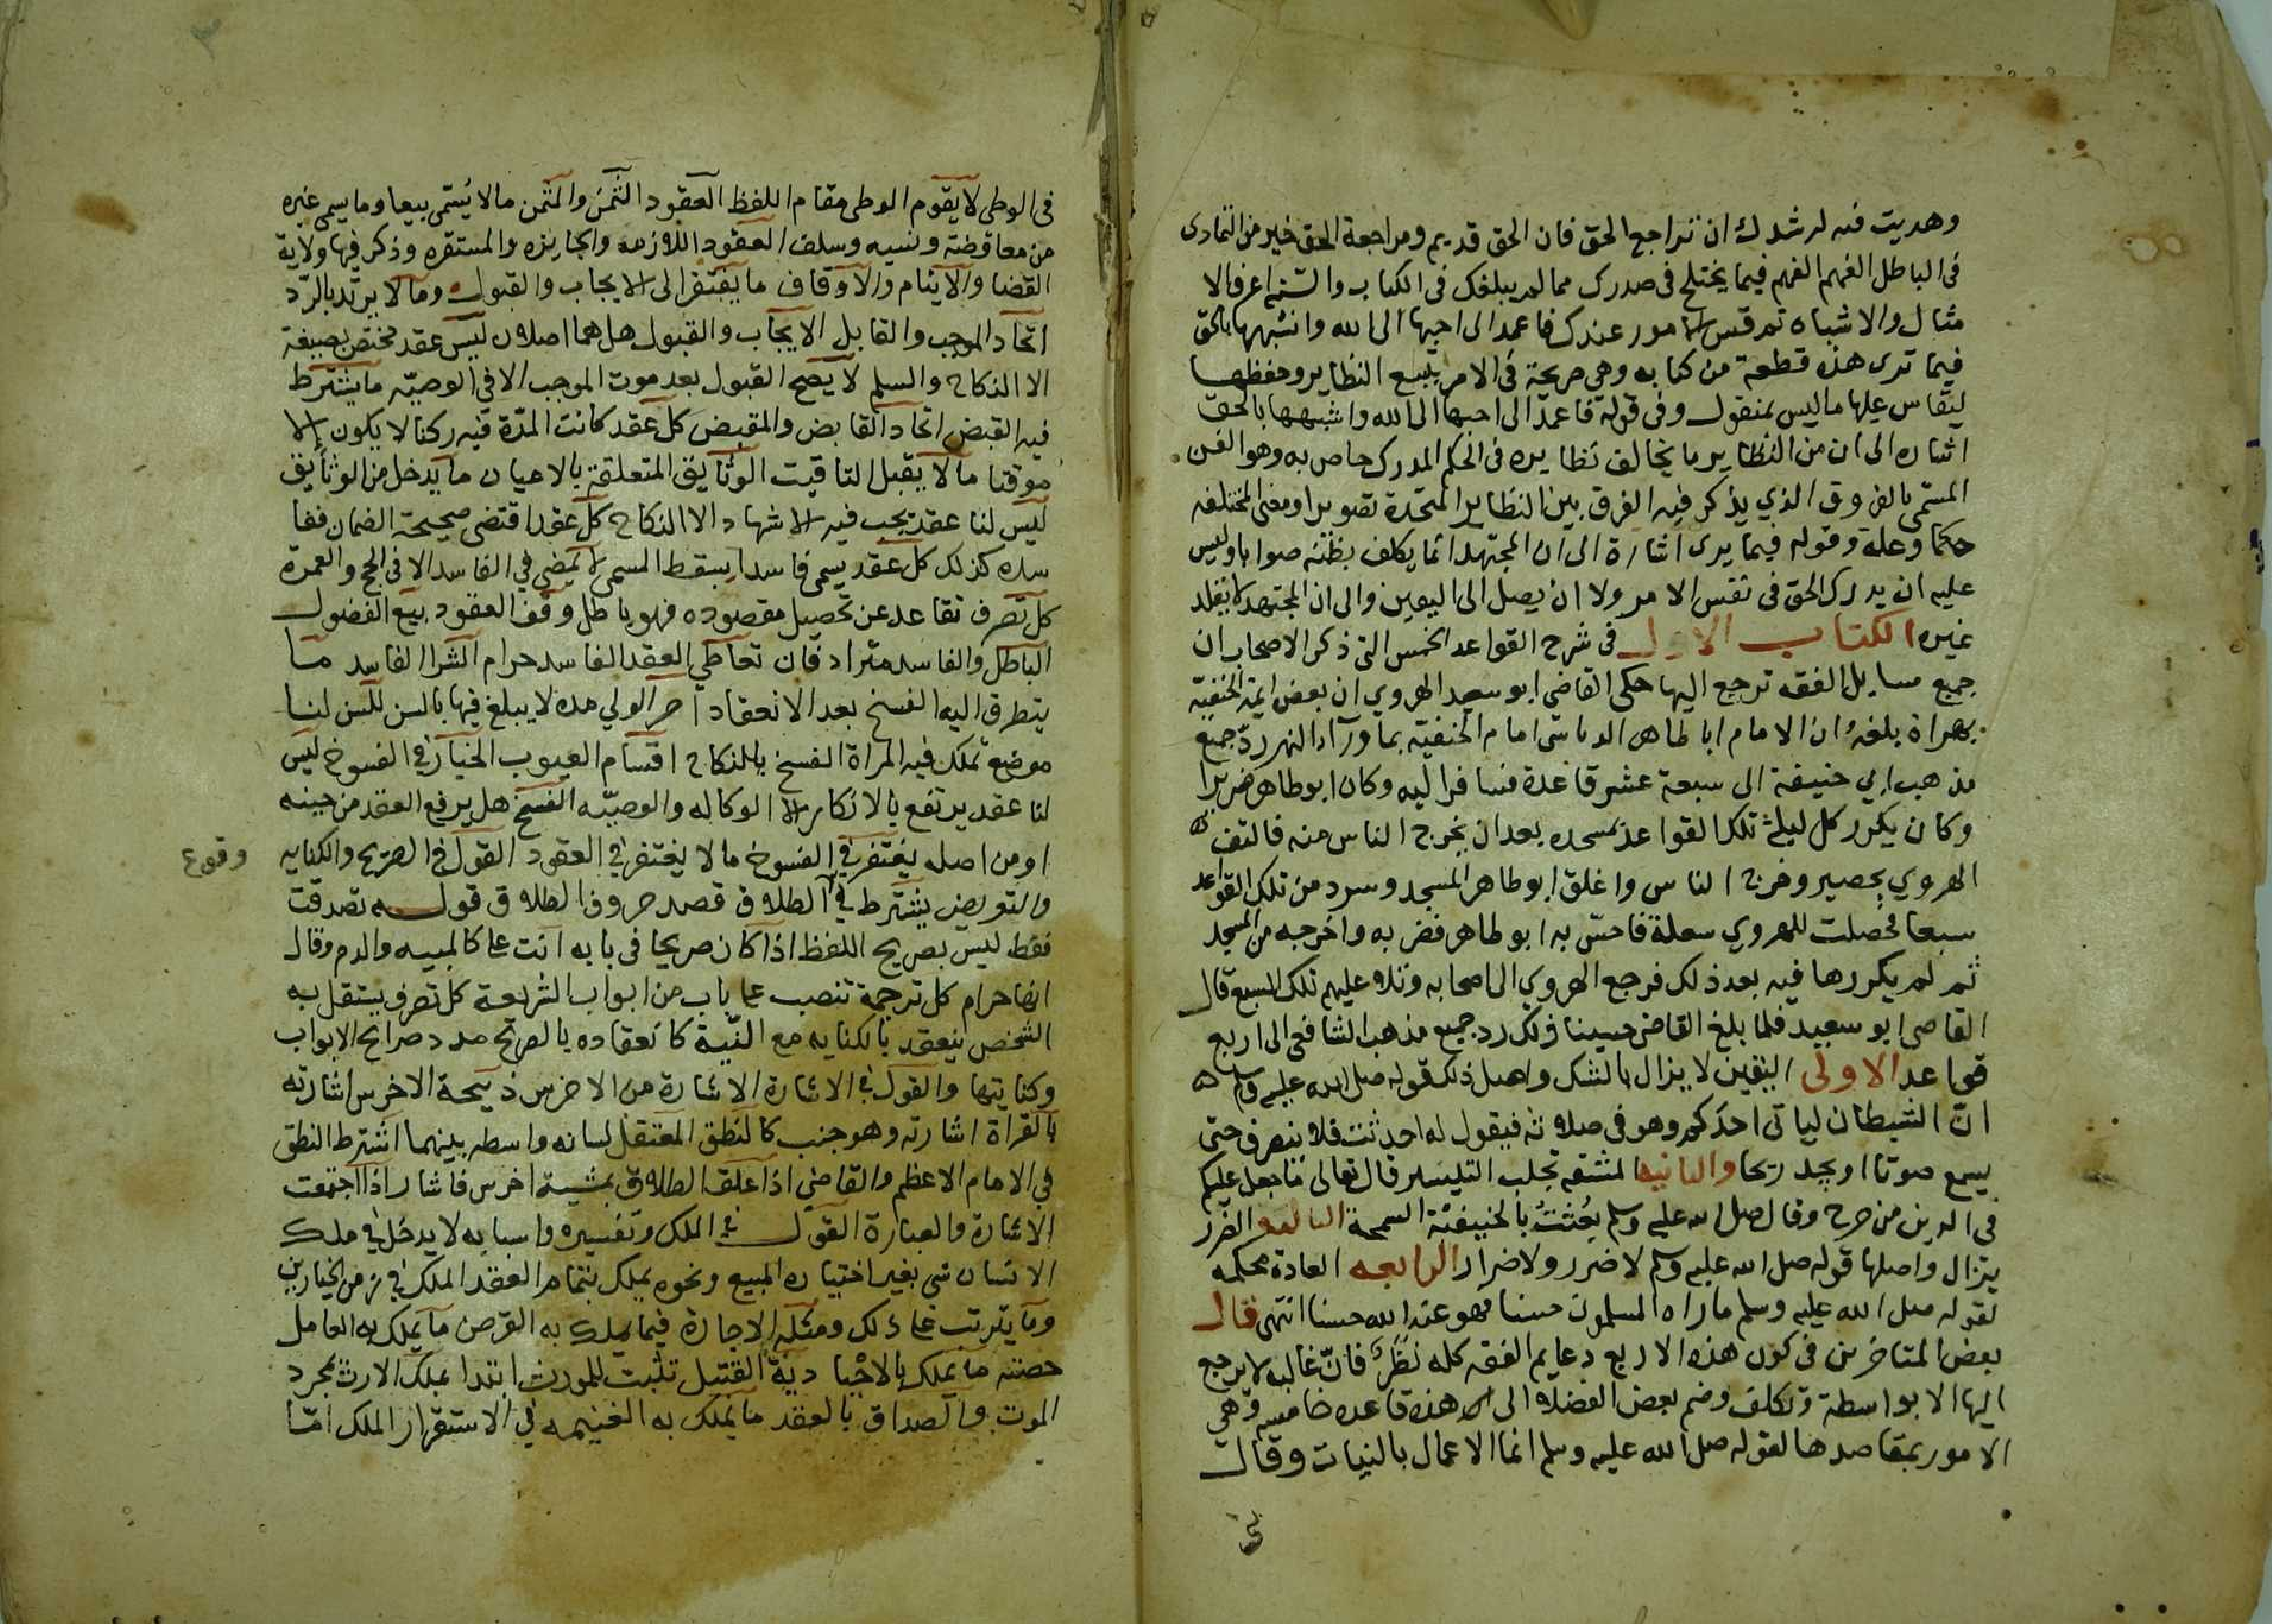 وهديت فيه لرشدك ان تراجع الحق فان الحق قديم ومراجعة الحق خير من التمادى
فى الباطل الفهم الفهم فيما يختلج فى صدرك مما لم يبلغك فى الكتاب والسنة اعرف الا
مثال والاشباه ثم قس الامور عندك فاعمد الى احبها الى الله واشبهها بالحق
فيما ترى هذه قطعة من كتابه وهى صريحة فى الامر بتتبع النظاير وحفظها
ليقاس عليها ما ليس بمنقول وفى قوله فاعمد الى احبها الى الله واشبهها بالحق
اشاره الى ان من النظاير ما يخالف نظايره فى الحكم لمدرك خاص به وهو الفن
المسمى بالفروق الذي يذكر فيه الفرق بين النظاير المتحدة تصويرا ومعنى المختلفه
حكما وعلة وقوله فيما يرى اشارة الى ان المجتهد انما يكلف بظنه صوابا وليس
عليه ان يدرك الحق فى نفس الامر ولا ان يصل الى اليقين والى ان المجتهد لا يقلد
غيره الكتاب الاول فى شرح القواعد الخمس التى ذكر الاصحاب ان
جميع مسايل الفقه ترجع اليها حكى القاضى ابو سعيد الهروي ان بعض ايمة الحنفيّه
بهراة بلغه ان الامام ابا طاهر الدباسى امام الحنفيّه بما ورآء النهر ردّ جميع
مذهب ابي حنيفة الى سبعة عشر قاعدة فسافر اليه وكان ابو طاهر ضريرا
وكان يكرر كل ليلة تلك القواعد بمسجده بعد ان يخرج الناس منه فالتف
الهروي بحصير وخرج الناس واغلق ابو طاهر المسجد وسرد من تلك القواعد
سبعا فحصلت للهروي سعلة فاحسّ به ابو طاهر فضربه واخرجه من المسجد
ثم لم يكررها فيه بعد ذلك فرجع الهروي الى اصحابه وتلا عليهم تلك السبع قال
القاضى ابو سعيد فلما بلغ القاضى حسينا ذلك رد جميع مذهب الشافعى الى اربع
قواعد الاولى اليقين لا يزال بالشك واصل ذلك قوله صلى الله عليه وسلم
انّ الشيطان لياتى احدكم وهو فى صلاته فيقول له احدثت فلا ينصرف حتى
يسمع صوتا او يجد ريحا والثانيه المشقه تجلب التيسير قال تعالى ما جعل عليكم
فى الدين من حرج وقال صلى الله عليه وسلم بُعثتُ بالحنيفيّة السمحة الثالثة الضرر
يزال واصلها قوله صلى الله عليه وسلم لا ضرر ولا ضرار الرابعه العادة محكمه
لقوله صلى الله عليه وسلم ما راه المسلمون حسنا فهو عند الله حسنا انتهى قال
بعض المتاخرين فى كون هذه الاربع دعايم الفقه كله نظرٌ فانّ غالبه لا يرجع
اليها الا بواسطة وتكلف وضم بعض الفضلا الى هذه قاعده خامسه وهى
الامور بمقاصدها لقوله صلى الله عليه وسلم انما الاعمال بالنيات وقال
فى الوطى لا يقوم الوطى مقام اللفظ العقود الثمن والمثمن ما لا يُسمى بيعا وما يسمى غيره
من معاوضة ونسيه وسلف العقود اللازمه والجايزه والمستقره وذكر فيها ولاية
القضا والايتام والاوقاف ما يفتقر الى الايجاب والقبول وما لا يرتد بالردّ
اتحاد الموجب والقابل الايجاب والقبول هل هما اصلان ليس عقد مختص بصيغة
الا النكاح والسلم لا يصح القبول بعد موت الموجب الا فى الوصيّه ما يشترط
فيه القبض اتحاد القابض والمقبض كل عقد كانت المدّة فيه ركنا لا يكون الا
موقتا ما لا يقبل التاقيت الوثايق المتعلقة بالاعيان ما يدخل من الوثايق
ليس لنا عقد يجب فيه الاشهاد الا النكاح كل عقد اقتضى صحيحة الضمان ففا
سده كذلك كل عقد يسمى فاسدا يسقط المسمى لا يمضي في الفاسد الا فى الحج والعمرة
كل تصرف تقاعد عن تحصيل مقصوده فهو باطل وقف العقود بيع الفضول
الباطل والفاسد مترادفان تعاطي العقد الفاسد حرام الشرا الفاسد ما
يتطرق اليه الفسخ بعد الانعقاد آخر الولي مده لا يبلغ فيها بالسن للسن لنا
موضع تملك فيه المراة الفسخ بالنكاح اقسام العيوب الخيار في الفسوخ ليس
لنا عقد يرتفع بالانكار الا الوكاله والوصيّه الفسخ هل يرفع العقد من حينه
او من اصله يغتفر في الفسوخ ما لا يغتفر في العقود القول في الصريح والكنايه
وقوع
والتعويض يشترط في الطلاق قصد حروف الطلاق قوله تصدقت
فقط ليس بصريح اللفظ اذا كان صريحا فى بابه انت على كالميتة والدم وقال
انها حرام كل ترجمة تنصب على باب من ابواب الشريعة كل تصرف يستقل به
الشخص ينعقد بالكنايه مع النيّة كانعقاده بالصريح عدد صرايح الابواب
وكنايتها والقول في الاشارة الاشارة من الاخرس ذبيحة الاخرس اشارته
بالقراة اشارته وهو جنب كالنطق المعتقل لسانه واسطه بينهما اشترط النطق
في الامام الاعظم والقاضي اذا علق الطلاق بمشية اخرس فاشار اذا اجتمعت
الاشارة والعبارة القول في الملك وتفسيره واسبابه لا يدخل في ملك
الانسان شى بغير اختياره المبيع ونحوه يملك بتمام العقد الملك في زمن الخيار لمن
وما يترتب على ذلك ومثله الاجارة فيما يملك به القرض ما يملك به العامل
حصته ما يملك بالاحْيا ديّة القتيل تثبت للمورث ابتدا يملك الارث بمجرد
الموت والصداق بالعقد ما يملك به الغنيمه في الاستقرار الملك امّا